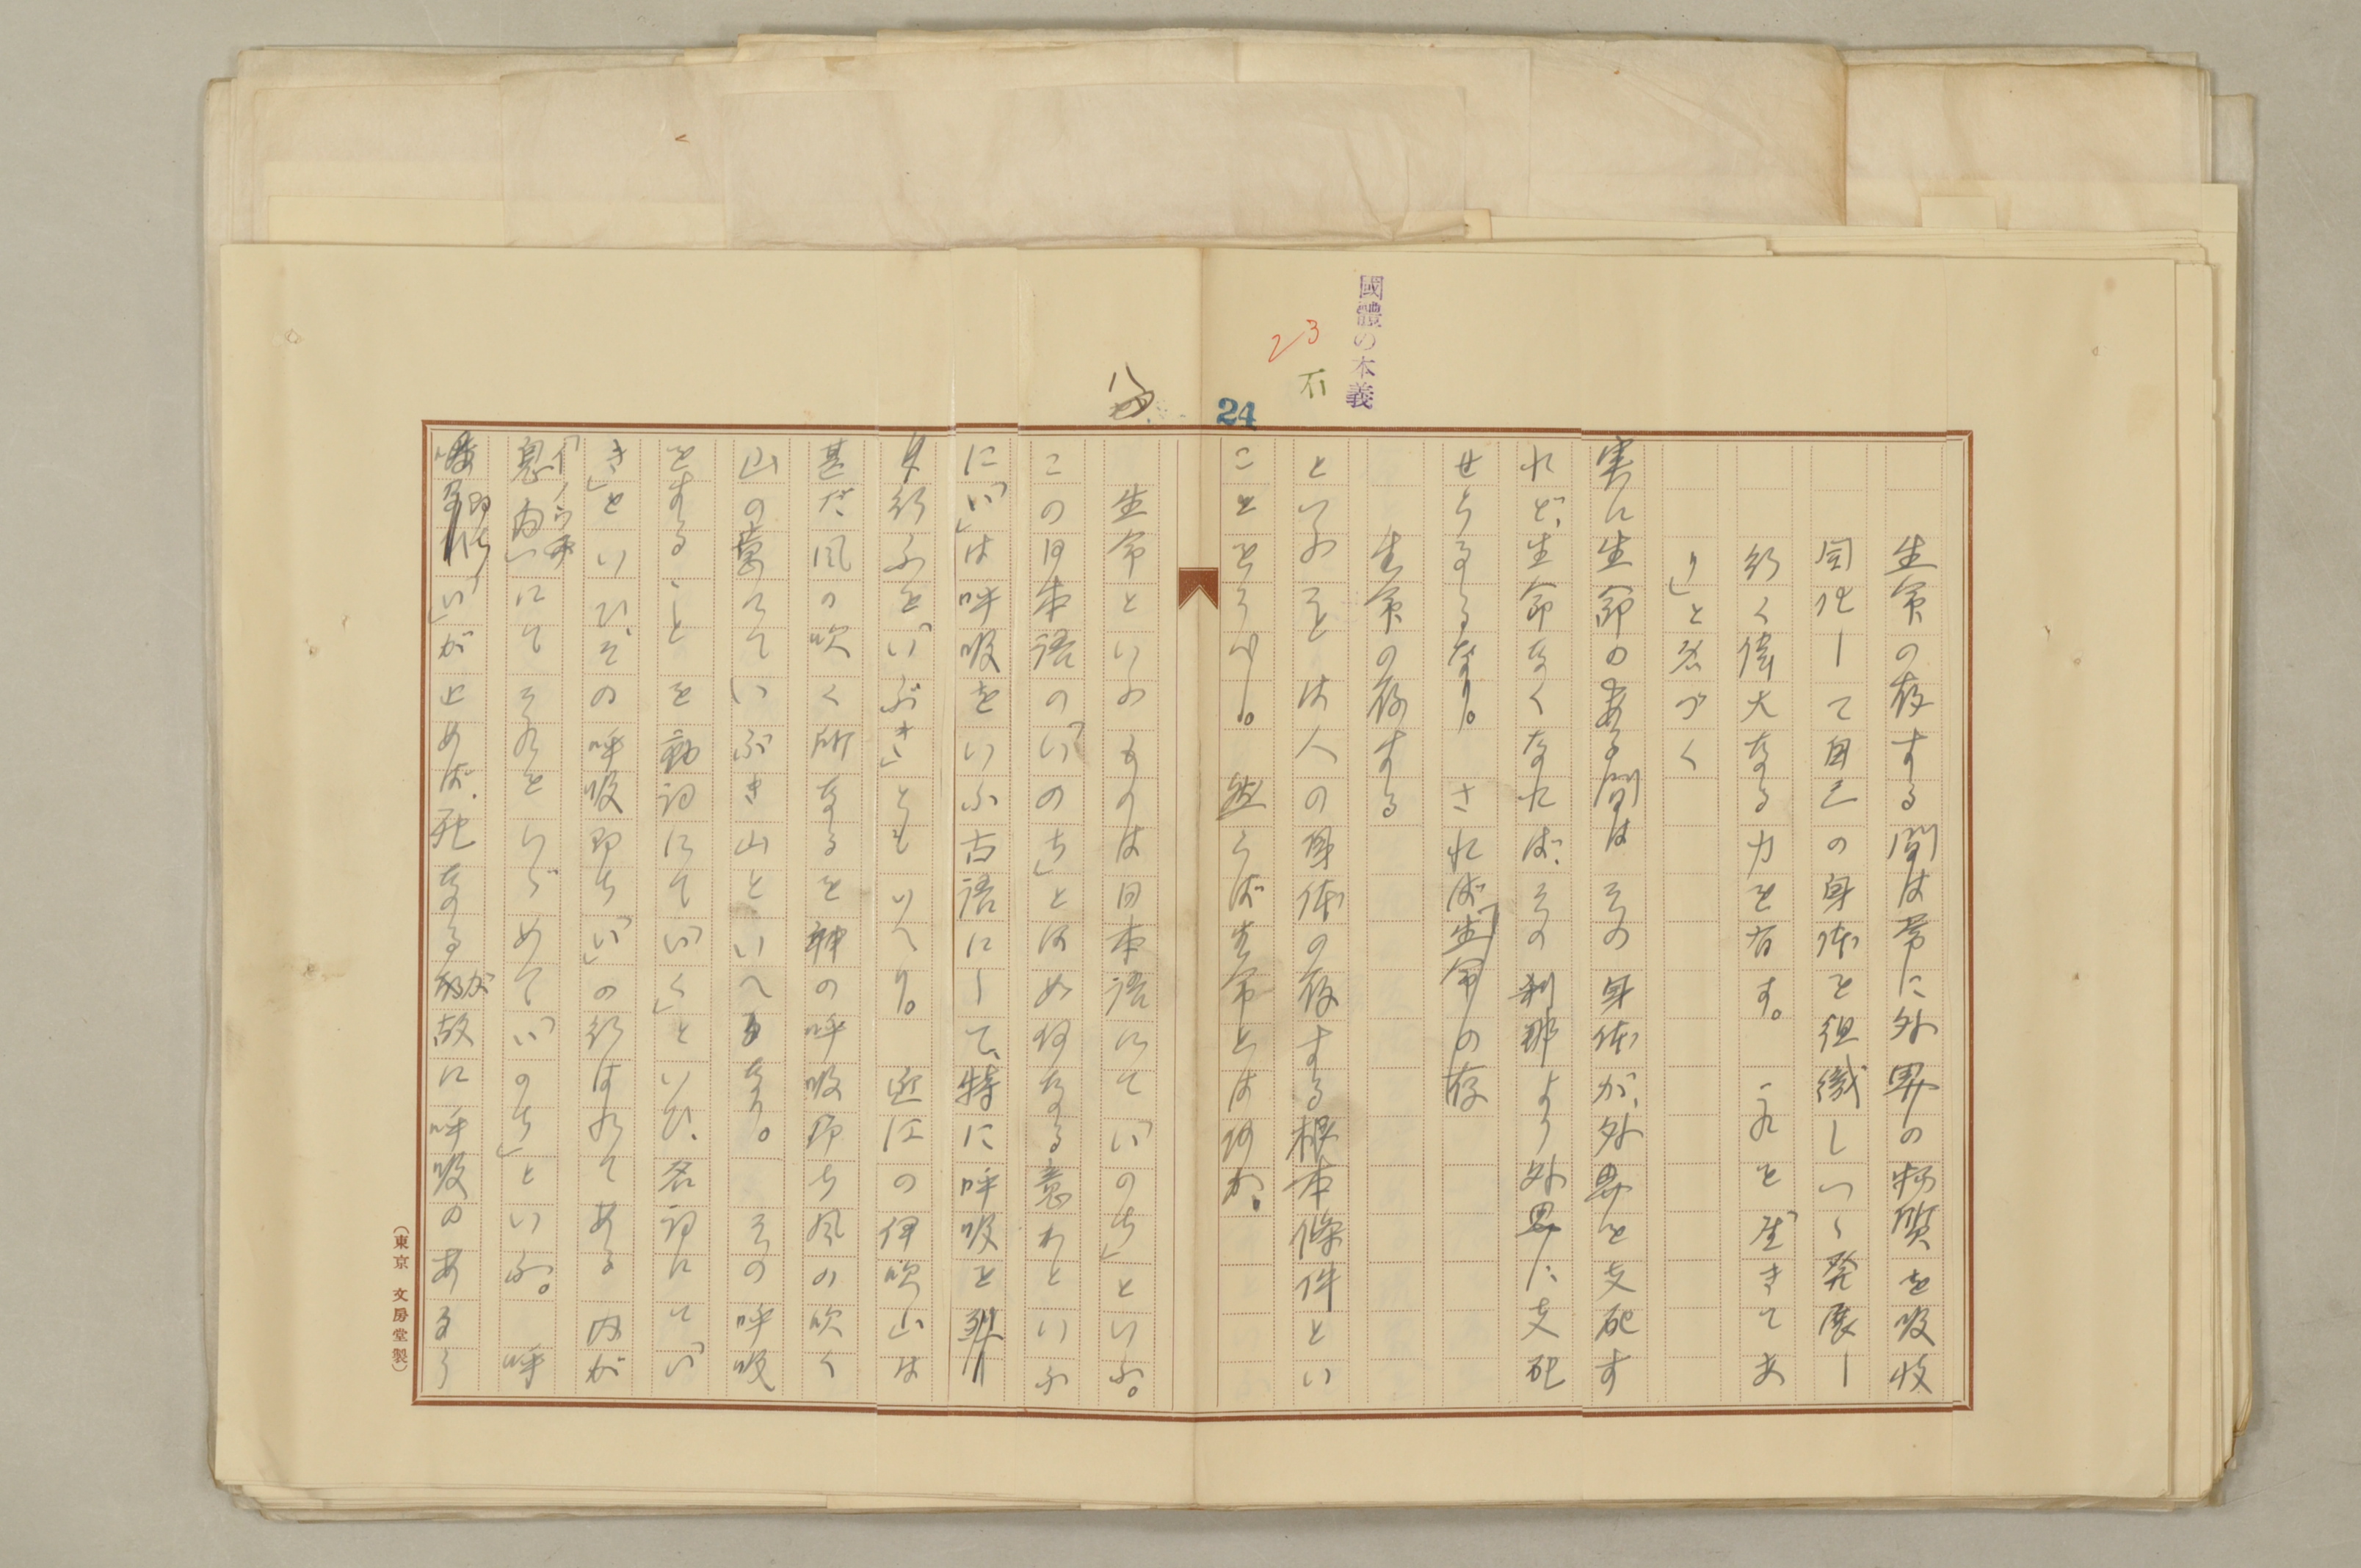 國體の本義
23
石
24
生命の存する間は常に外界の物質を吸收
同化して自己の身体を組織しつゝ発展し
行く偉大なる力を有す。これを「生きてあ
り」と名づく
実に生命のある間はその身体が、外界を支配す
れど、生命なくなれば、その刹那より外界に支配
せらるゝなり。されば「生命の存
生命の存する
といふことは人の身体の存する根本條件とい
ことをうべし。然らば生命とは何か。
生命といふものは日本語にて「いのち」といふ。
この日本語の「いのち」とは如何なる意かといふ
に「い」は呼吸をいふ古語にして、特に呼吸を
行ふを「いぶき」ともいへり。近江の伊吹山は
甚だ風の吹く所なるを神の呼吸即ち風の吹く
山の萬えていぶき山といへるなり。その呼吸
をすることを動詞にて「いく」といひ、名詞にて「い
き」といひ、その呼吸即ち「い」の行はれてある内が
息内」にてそれをちゞめて「いのち」といふ。呼
即ち「い」が止めば、死なるが故に呼吸のあるう
（東京 文房堂製）